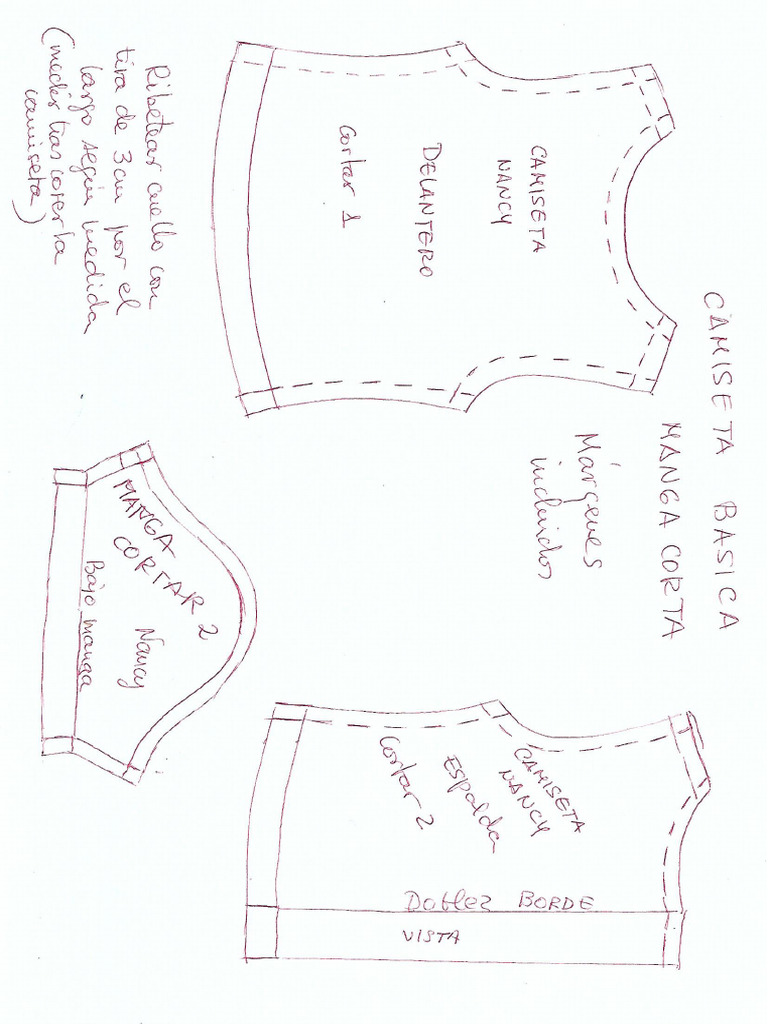 CAMISETA BASICA
MANGA CORTA
Márgenes
incluidos
CAMISETA
NANCY
DELANTERO
Cortar 1
Ribetear cuello con
tira de 3 cm por el
largo según medida
(medir tras coser la
camiseta)
CAMISETA
NANCY
Espalda
Cortar 2
Doblez BORDE
VISTA
MANGA
CORTAR 2
Nancy
Bajo manga